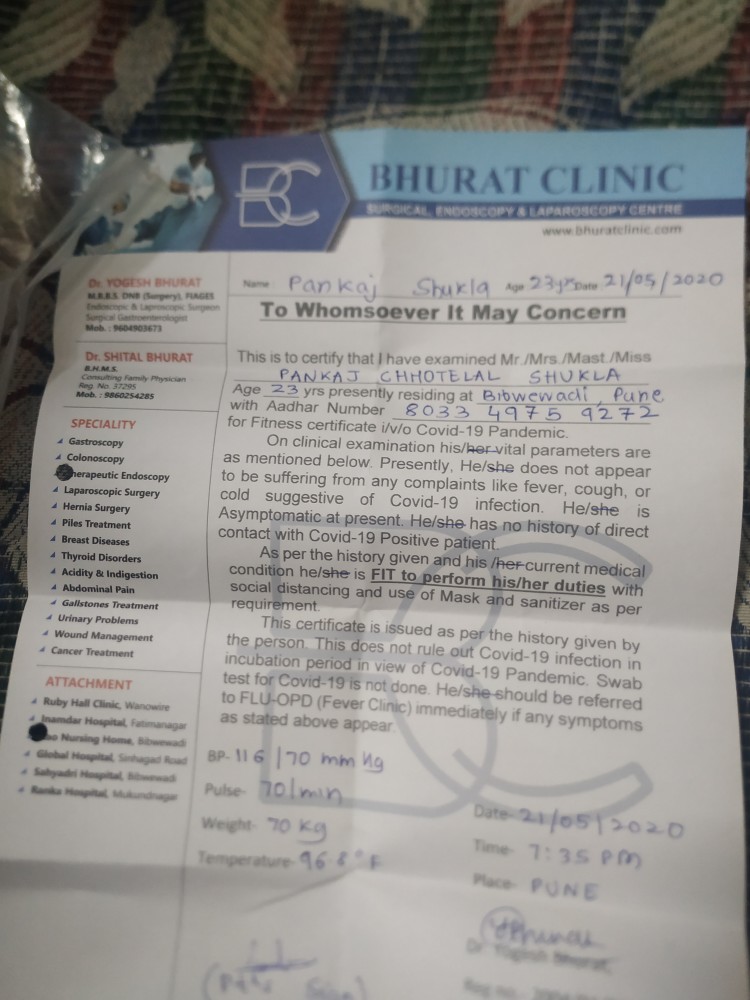 BC
BHURAT CLINIC
SURGICAL, ENDOSCOPY & LAPAROSCOPY CENTRE
www.bhuratclinic.com
Dr. YOGESH BHURAT
M.B.B.S. DNB (Surgery), FIAGES
Endoscopic & Laproscopic Surgeon
Surgical Gastroenterologist
Mob. : 9604903673
Dr. SHITAL BHURAT
B.H.M.S.
Consulting Family Physician
Reg. No. 37295
Mob. : 9860254285
SPECIALITY
Gastroscopy
Colonoscopy
herapeutic Endoscopy
Laparoscopic Surgery
Hernia Surgery
Piles Treatment
Breast Diseases
Thyroid Disorders
Acidity & Indigestion
Abdominal Pain
Gallstones Treatment
Urinary Problems
Wound Management
Cancer Treatment
ATTACHMENT
Ruby Hall Clinic, Wanowire
Inamdar Hospital, Fatimanagar
Nursing Home, Bibwewadi
Global Hospital, Sinhagad Road
Sahyadri Hospital, Bibwewadi
Ranka Hospital, Mukundnagar
Name : Pankaj Shukla Age 23yrs Date 21/05/2020
To Whomsoever It May Concern
This is to certify that I have examined Mr./Mrs./Mast./Miss
PANKAJ CHHOTELAL SHUKLA
Age 23 yrs presently residing at Bibwewadi, Pune
with Aadhar Number 8033 4975 9272
for Fitness certificate i/v/o Covid-19 Pandemic.
On clinical examination his/her vital parameters are
as mentioned below. Presently, He/she does not appear
to be suffering from any complaints like fever, cough, or
cold suggestive of Covid-19 infection. He/she is
Asymptomatic at present. He/she has no history of direct
contact with Covid-19 Positive patient.
As per the history given and his /her current medical
condition he/she is FIT to perform his/her duties with
social distancing and use of Mask and sanitizer as per
requirement.
This certificate is issued as per the history given by
the person. This does not rule out Covid-19 infection in
incubation period in view of Covid-19 Pandemic. Swab
test for Covid-19 is not done. He/she should be referred
to FLU-OPD (Fever Clinic) immediately if any symptoms
as stated above appear.
BP- 116/70 mmHg
Pulse- 70/min
Weight- 70 kg
Temperature- 96.8°F
Date- 21/05/2020
Time- 7:35 PM
Place- PUNE
Dr. Yogesh Bhurat